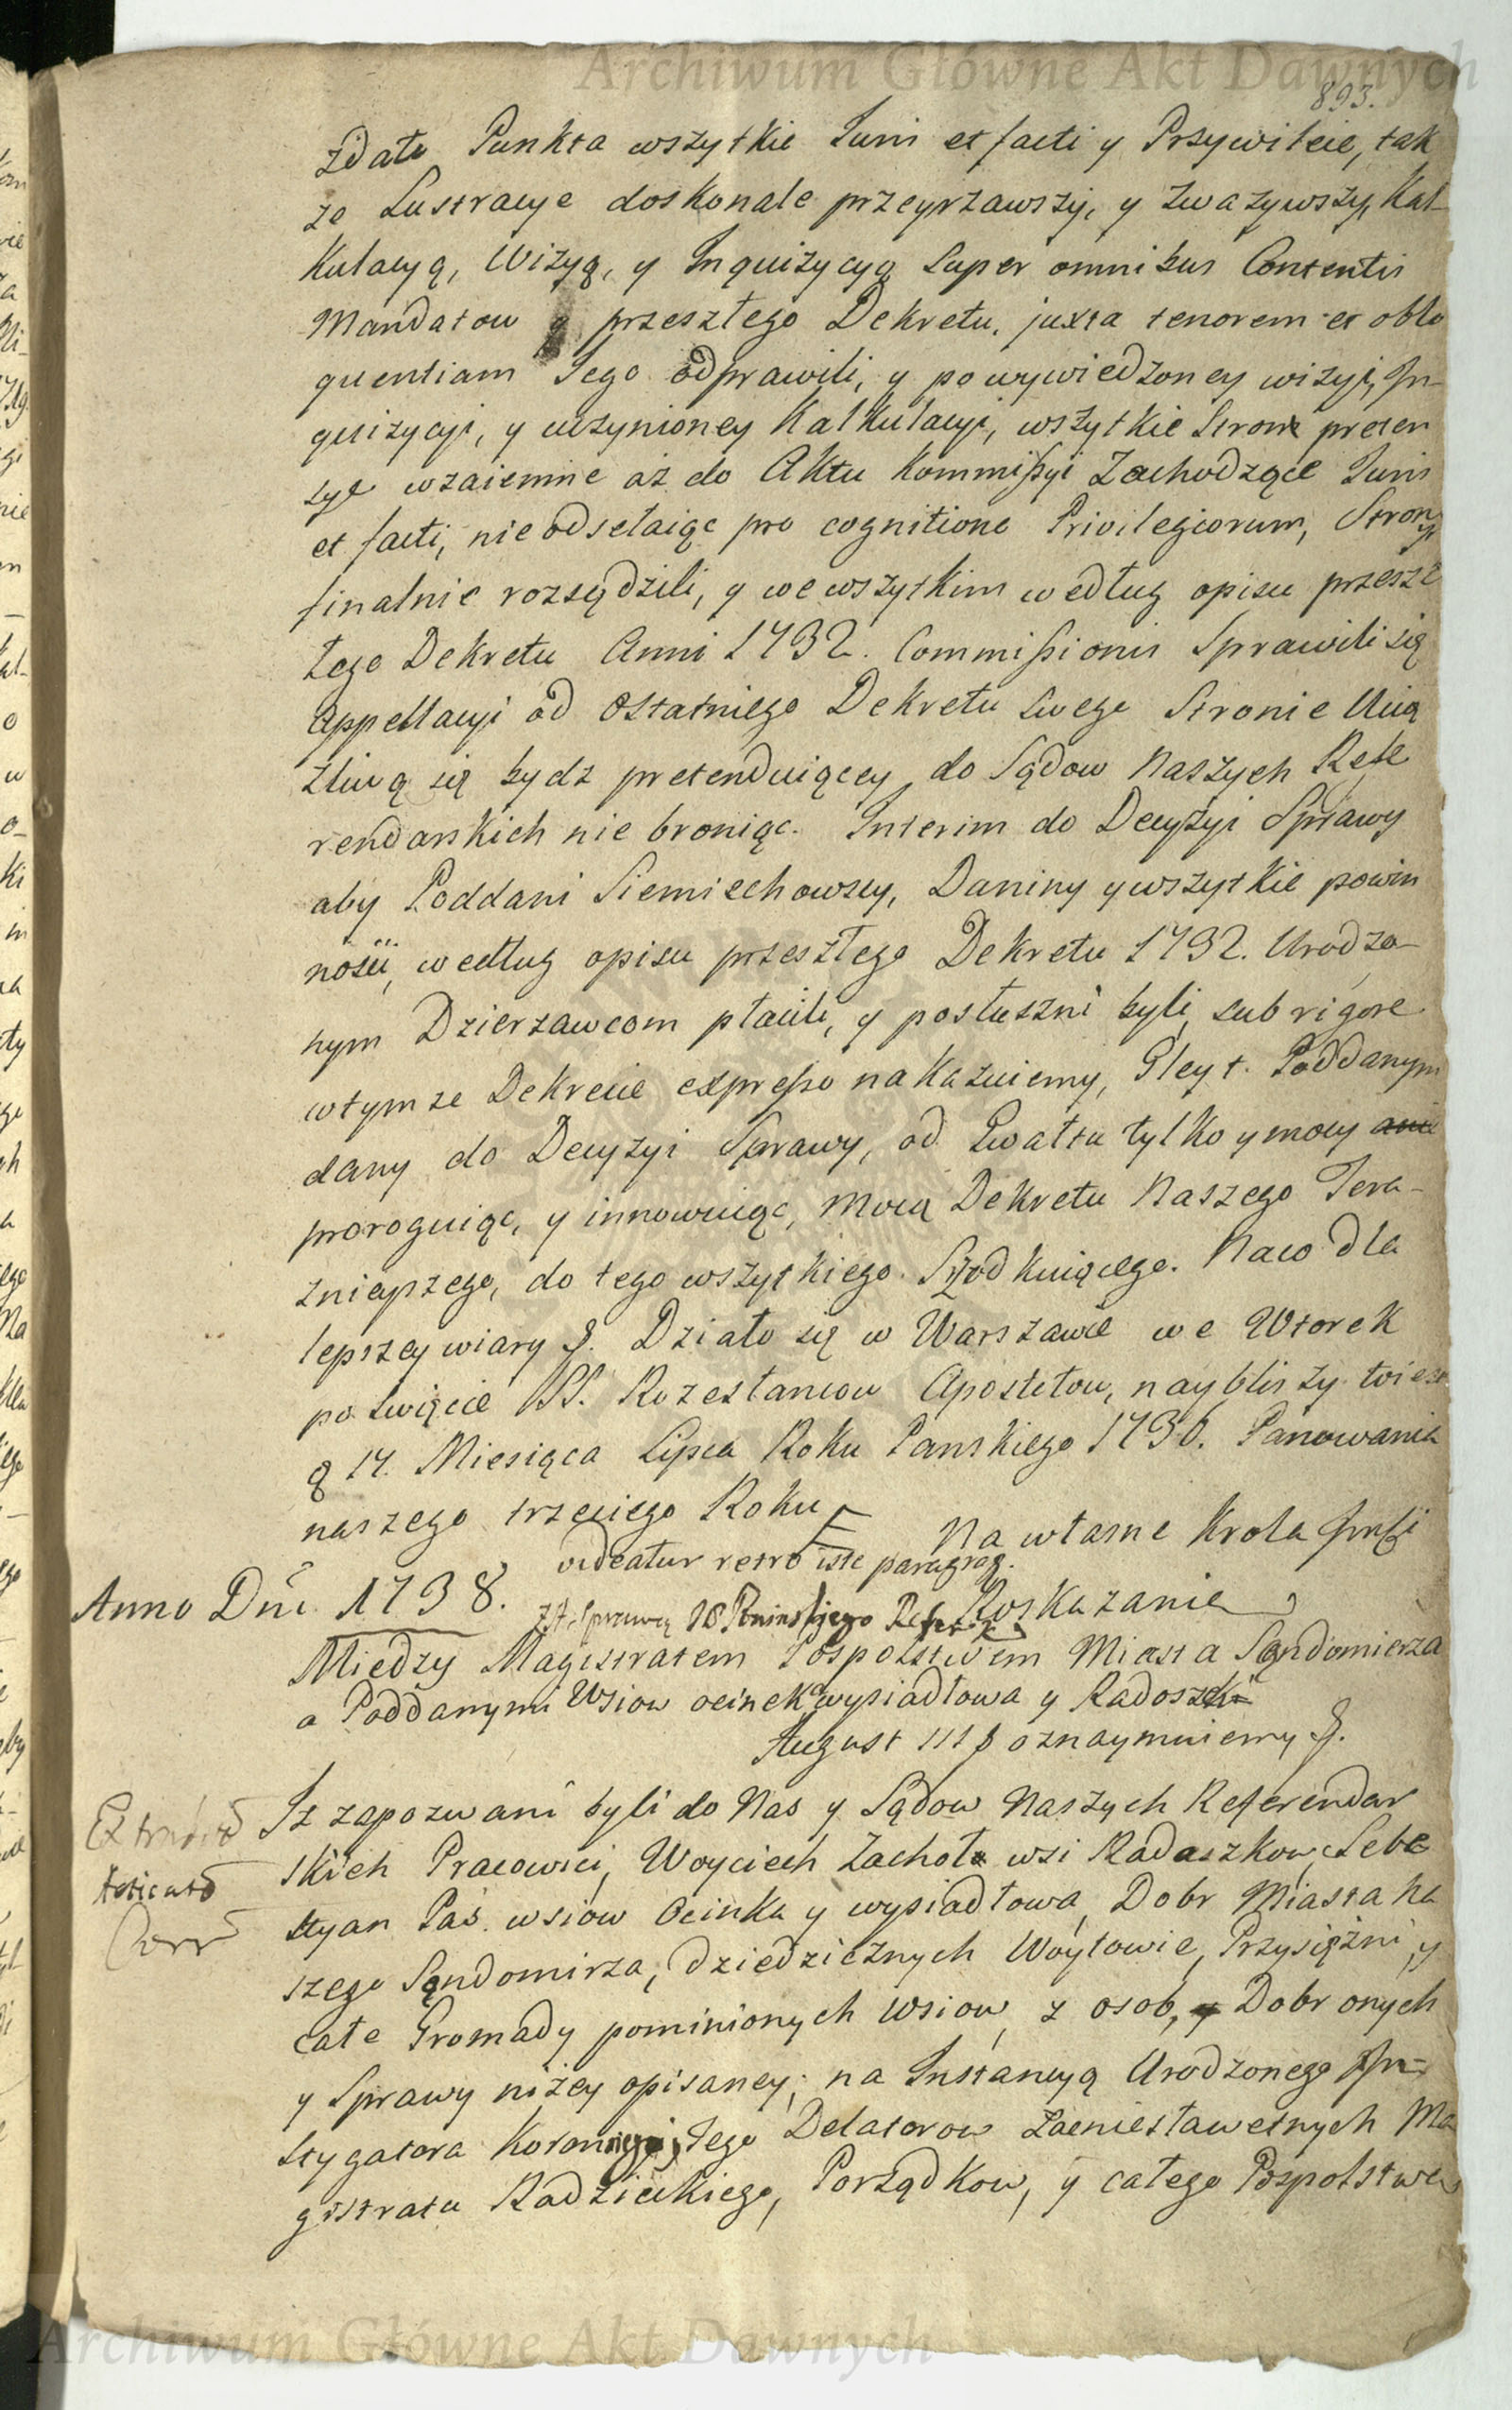 Archiwum Główne Akt Dawnych
893.
zdało Punkta wszytkie Juris et facti y Przywileie, tak
ze Lustracye doskonale przeyrzawszy, y zwazywszy, Kal-
kulacyą, Wizyą, y Inquizycyą super omnibus Contentis
Mandatow y przeszłego Dekretu, juxta tenorem et oblo
quentiam Jego odprawili, y po wywiedzoney wizyi, In-
quizycyi, y uczynioney Kalkulacyi, wszytkie Stron preten
sye wzaiemne aż do Aktu Kommissyi Zachodzące Juris
et facti, nie odsełaiąc pro cognitione Privilegiorum, Strony
finalnie rozsądzili, y we wszytkim według opisu przesz
łego Dekretu Anni 1732. Commissionis Sprawili się
Appellacyi od Ostatniego Dekretu swego Stronie Ucią
zliwą się bydz pretenduiącey do Sądow Naszych Refe
rendarskich nie broniąc. Interim do Decyzyi Sprawy
aby Poddani Siemiechowscy, Daniny y wszytkie powin
nosci, według opisu przeszłego Dekretu 1732. Urodzo-
nym Dzierzawcom płacili, y posłuszni byli, sub rigore
w tymze Dekrecie expresso nakazuiemy, Gleyt Poddanym
dany do Decyzyi Sprawy, od Gwałtu tylko y mocy
proroguiąc, y innowuiąc, Mocą Dekretu Naszego Tera-
znieyszego, do tego wszytkiego Szrodkuiącego. Na co dla
lepszey wiary &. Działo się w Warszawie we Wtorek
po Swięcie SS. Rozesłancow Apostołow, nayblizszy to iest
g 17. Miesiąca Lipca Roku Panskiego 1736. Panowania
naszego trzeciego Roku
Na własne Krola Jmsci
videatur retro iste paragrag.
Roskazanie
Anno Dni. 1738.
Miedzy Magistratem Pospolstwem Miasta Sandomierza
a Poddanymi Wsiow ocinek wysiadłowa y Radoszki
August III & oznaymuiemy &.
Iz zapozwani byli do Nas y Sądow Naszych Referendar
skich Pracowici, Woyciech Zachoła wsi Radoszkow, Seba
styan Paś wsiow Ocinka y wysiadłowa, Dobr Miasta Na
szego Sandomirza, dziedzicznych Woytowie, Przysięzni y
całe Gromady pominionych wsiow, z osob, y Dobr onych
y Sprawy niżey opisaney; na Instancyą Urodzonego In-
stygatora Koronnego, Jego Delatorow Zacniesławetnych Ma
gistratu Radzieckiego, Porządkow, y całego Pospolstwa
Archiwum Główne Akt Dawnych